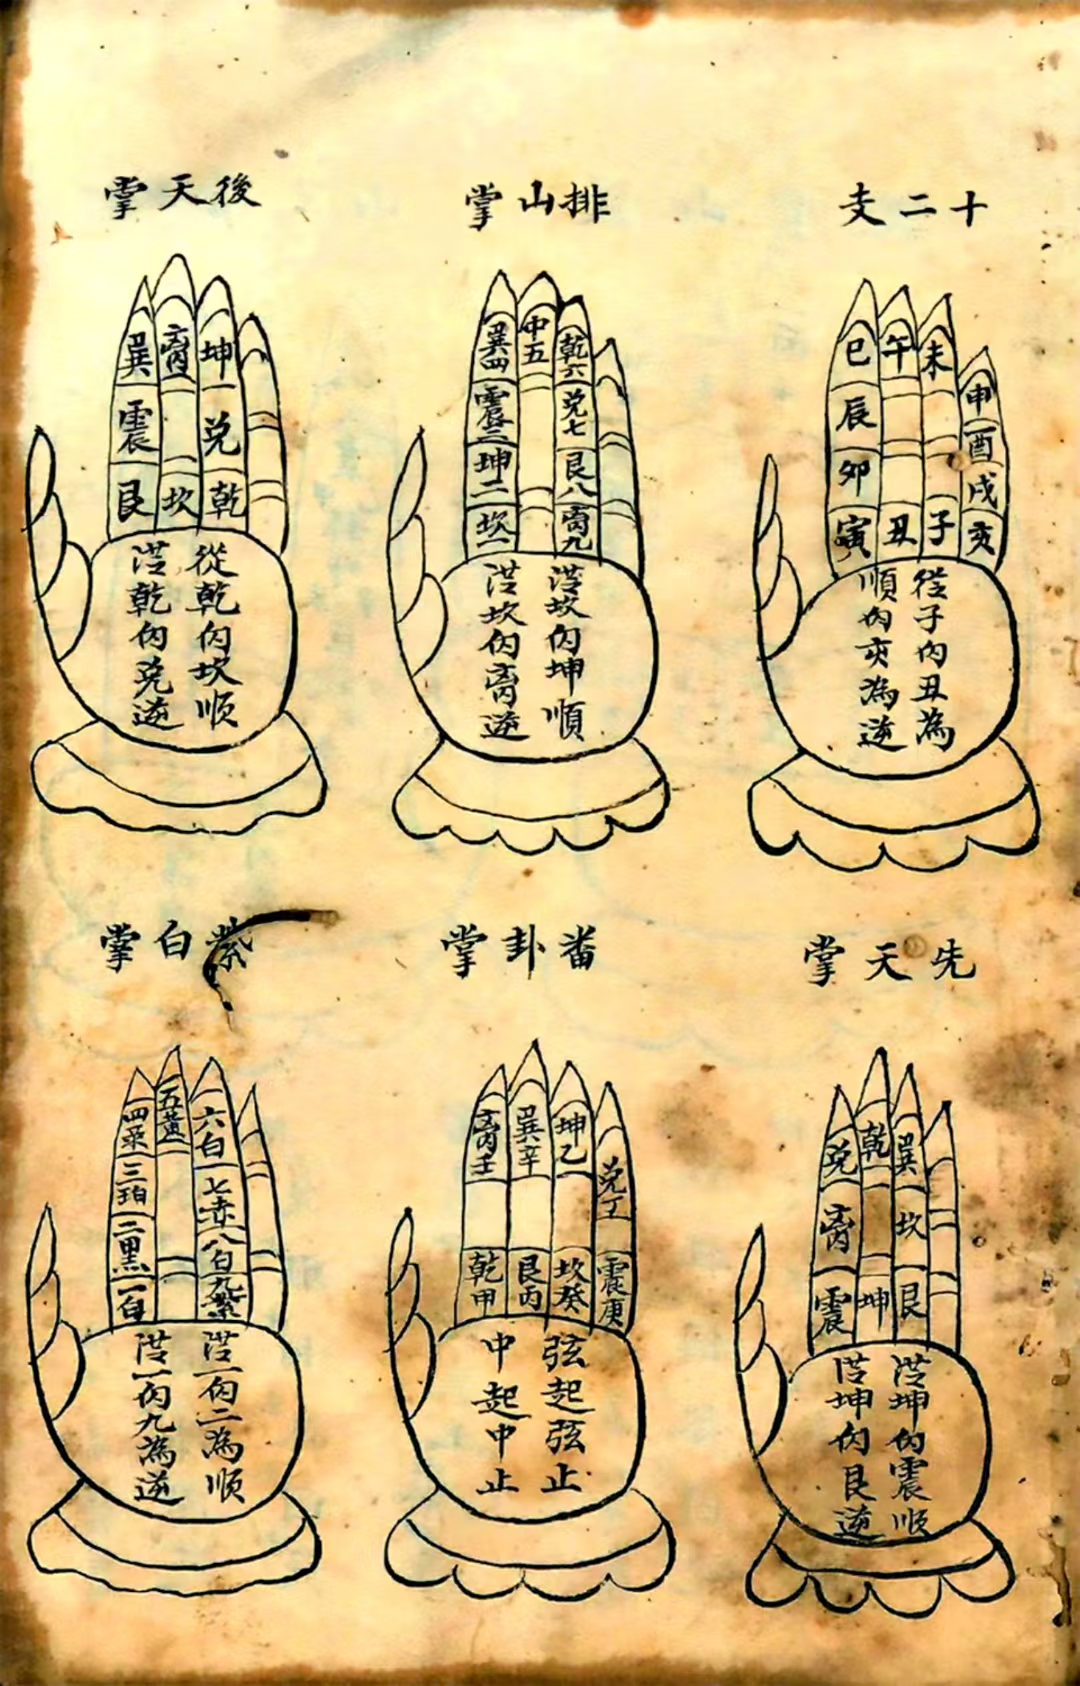 十二支
巳
辰
卯
寅
午
丑
未
子
申
酉
戌
亥
從子向丑為
順向亥為逆
排山掌
巽四
震三
坤二
坎一
中五
乾六
兌七
艮八
离九
從坎向坤順
從坎向离逆
後天掌
巽
震
艮
离
坎
坤
兌
乾
從乾向坎順
從乾向兌逆
先天掌
兌
离
震
乾
坤
巽
坎
艮
從坤向震順
從坤向艮逆
番卦掌
离壬
乾甲
巽辛
艮丙
坤乙
坎癸
兌丁
震庚
弦起弦止
中起中止
紫白掌
四菉
三珀
二黑
一白
五黃
六白
七赤
八白
九紫
從一向二為順
從一向九為逆